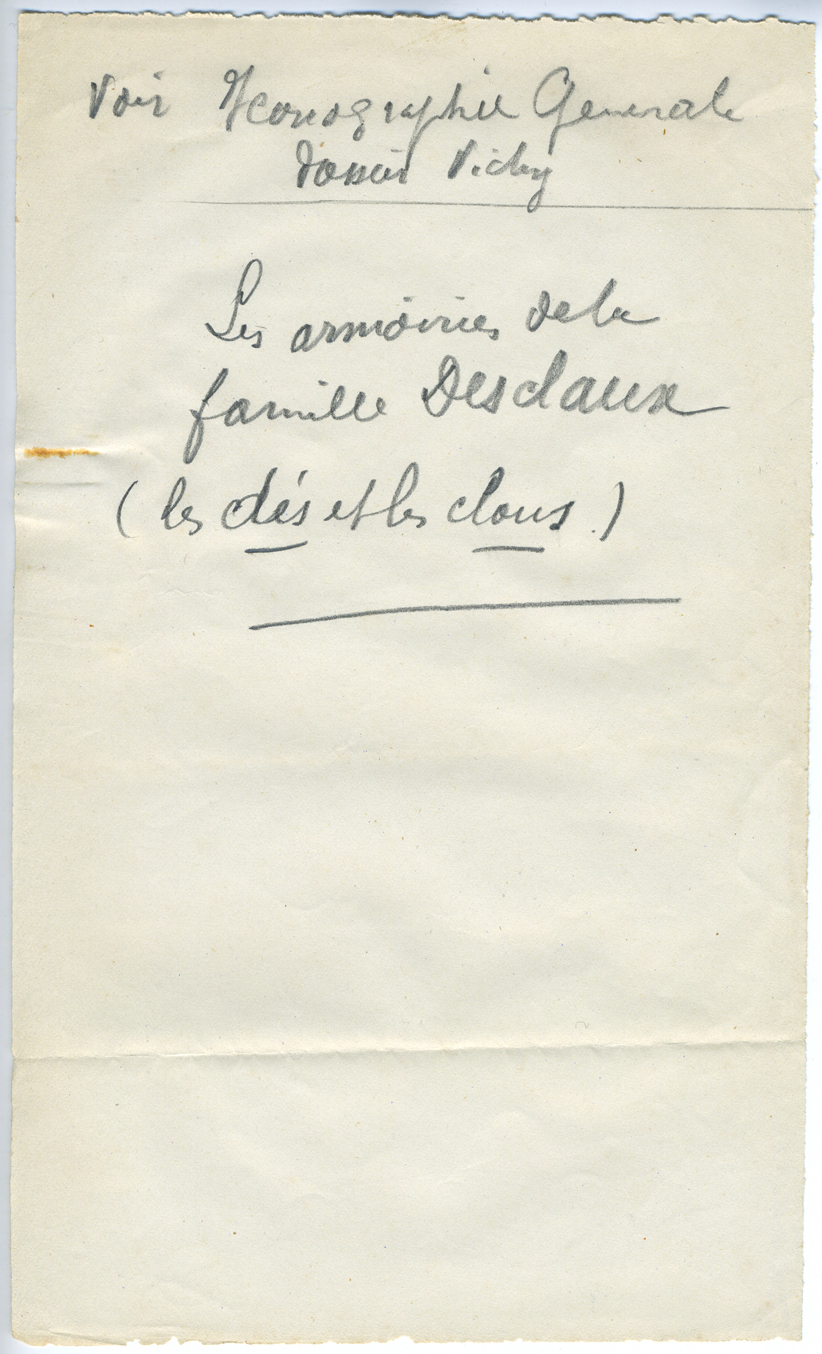 Voir Iconographie Generale
dossier Vichy
Les armoiries de la
famille Desclaux
(les clés et les clous.)